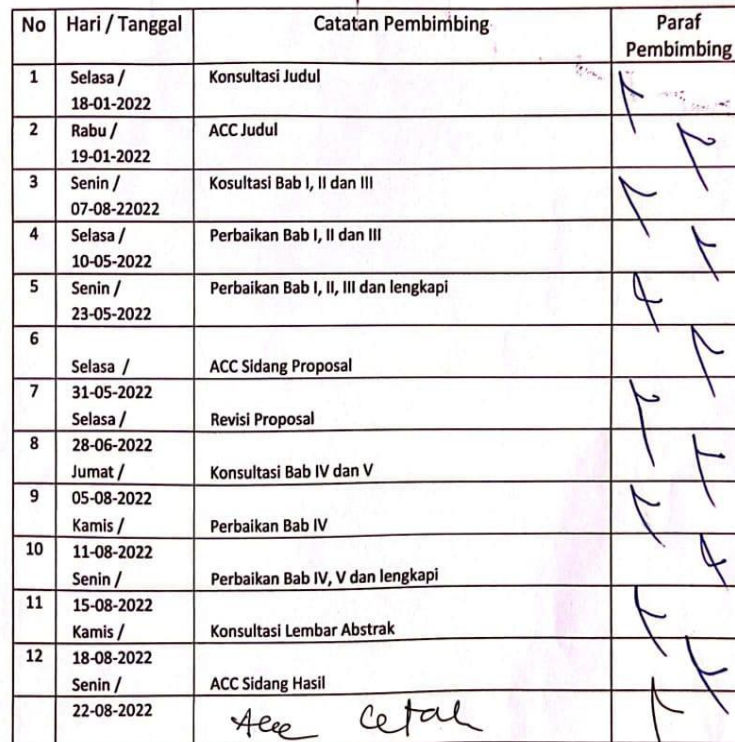 No Hari / Tanggal Catatan Pembimbing Paraf
Pembimbing
1 Selasa / Konsultasi Judul
18-01-2022
2 Rabu / ACC Judul
19-01-2022
3 Senin / Kosultasi Bab I, II dan III
07-08-22022
4 Selasa / Perbaikan Bab I, II dan III
10-05-2022
5 Senin / Perbaikan Bab I, II, III dan lengkapi
23-05-2022
6
Selasa / ACC Sidang Proposal
7 31-05-2022
Selasa / Revisi Proposal
8 28-06-2022
Jumat / Konsultasi Bab IV dan V
9 05-08-2022
Kamis / Perbaikan Bab IV
10 11-08-2022
Senin / Perbaikan Bab IV, V dan lengkapi
11 15-08-2022
Kamis / Konsultasi Lembar Abstrak
12 18-08-2022
Senin / ACC Sidang Hasil
22-08-2022 Acc Cetak